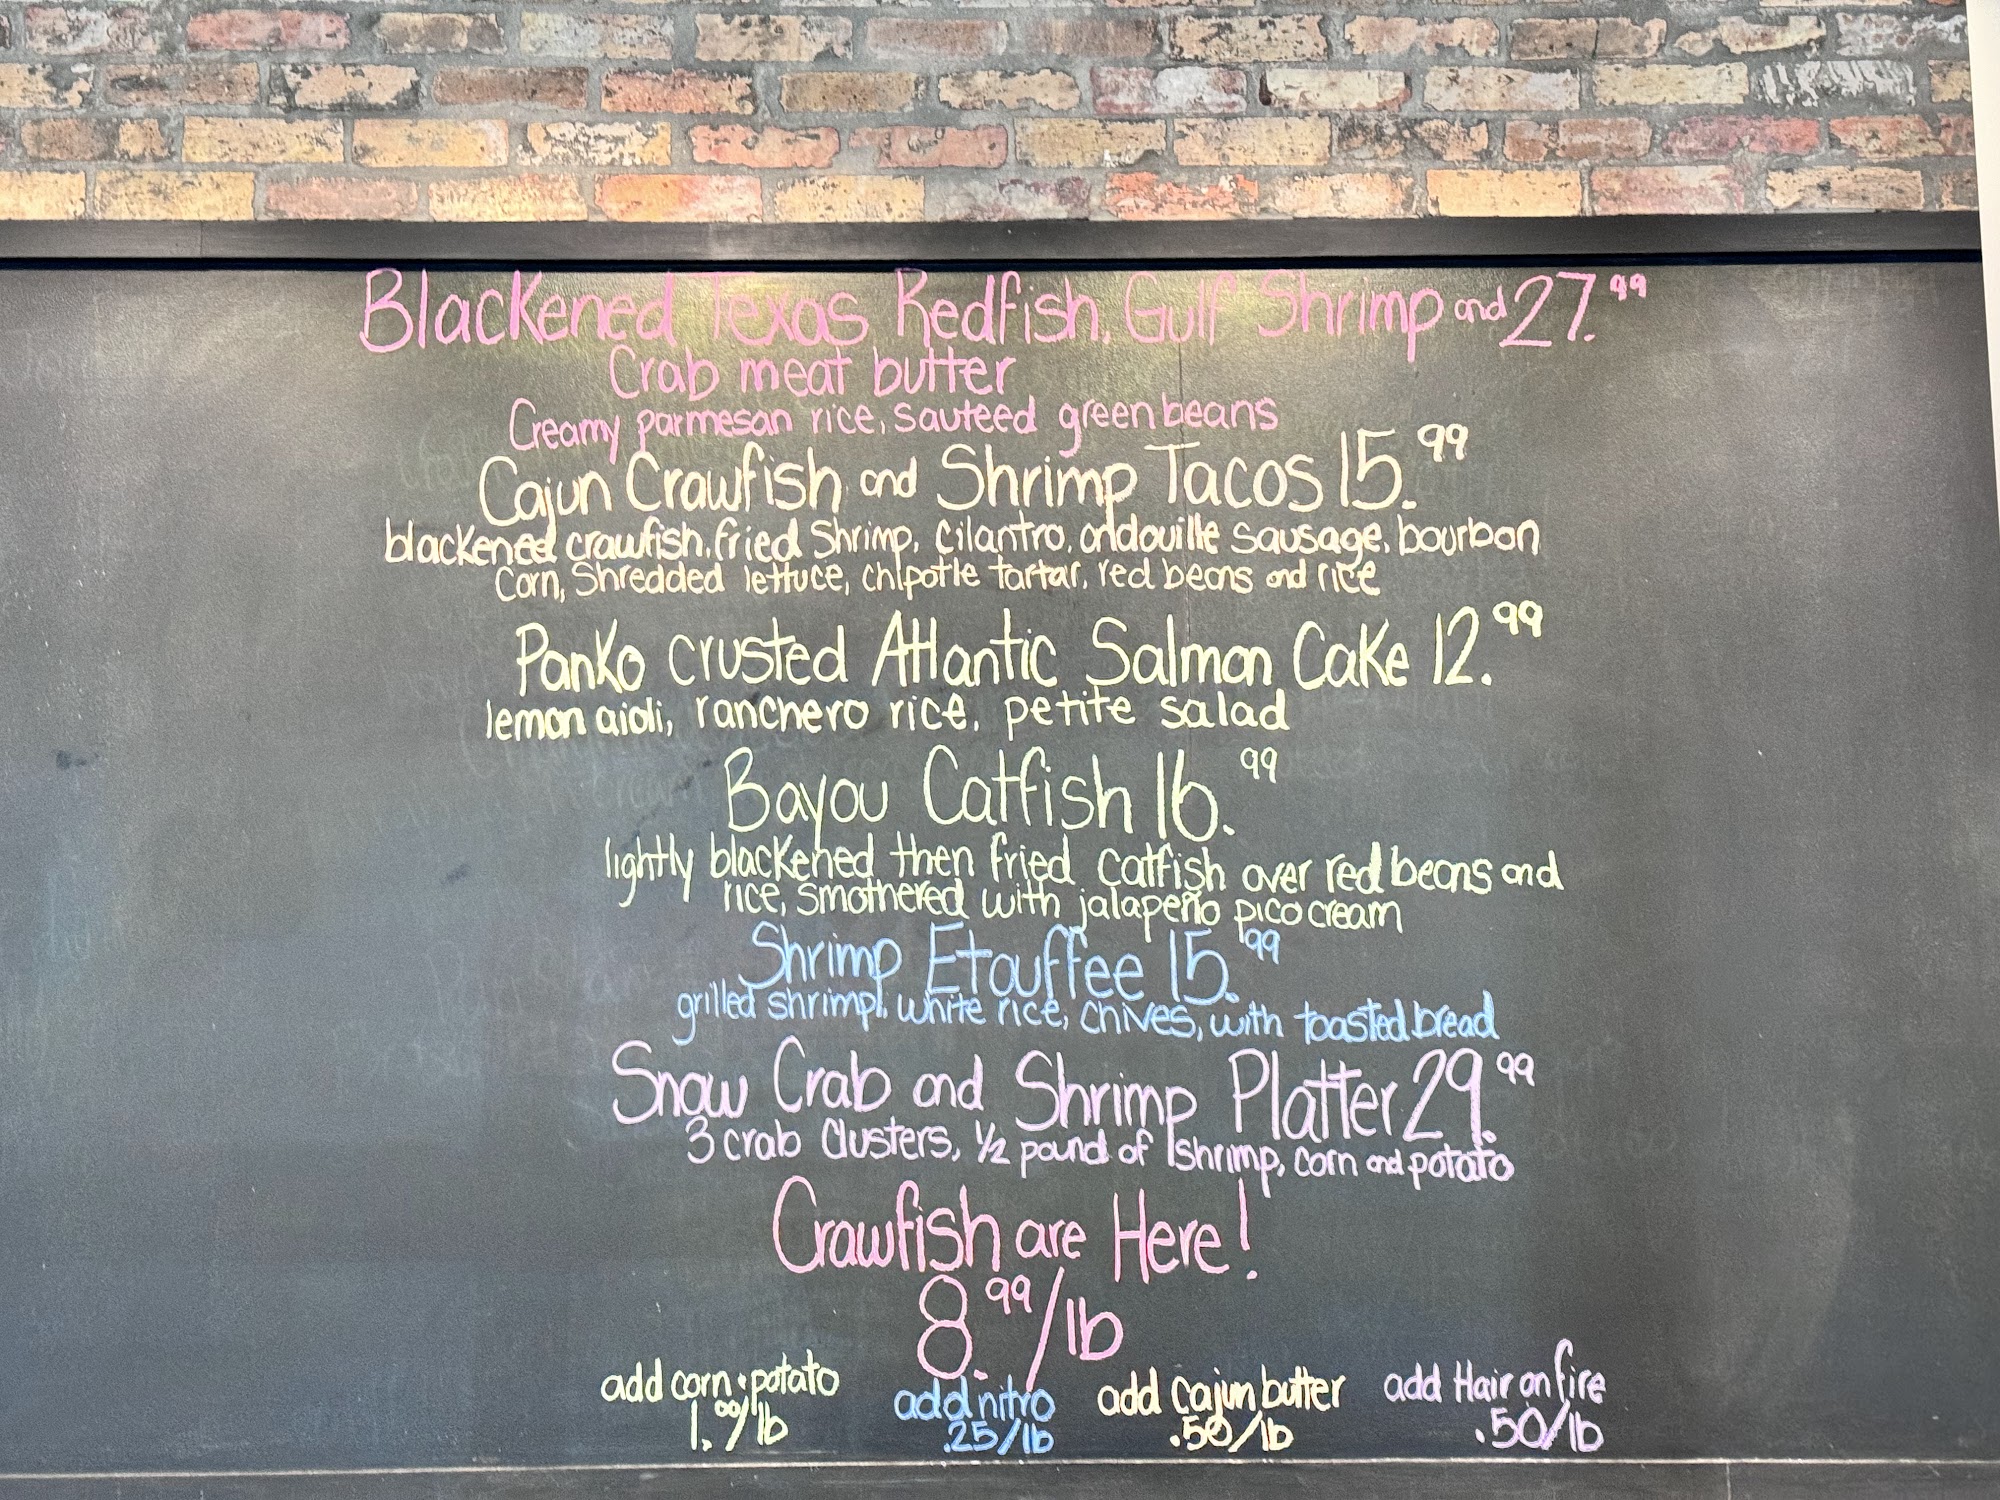 Blackened Texas Redfish, Gulf Shrimp and 27.99
Crab meat butter
Creamy parmesan rice, sauteed green beans
Cajun Crawfish and Shrimp Tacos 15.99
blackened crawfish, fried Shrimp, cilantro, andouille sausage, bourbon
Corn, Shredded lettuce, chipotle tartar, red beans and rice
Panko crusted Atlantic Salmon Cake 12.99
lemon aioli, ranchero rice, petite salad
Bayou Catfish 16.99
lightly blackened then fried catfish over red beans and
rice, smothered with jalapeño pico cream
Shrimp Etouffee 15.99
grilled shrimp, white rice, chives, with toasted bread
Snow Crab and Shrimp Platter 29.99
3 crab clusters, 1/2 pound of shrimp, corn and potato
Crawfish are Here!
8.99/lb
add corn + potato add nitro add cajun butter add Hair on fire
1.00/lb .25/lb .50/lb .50/lb